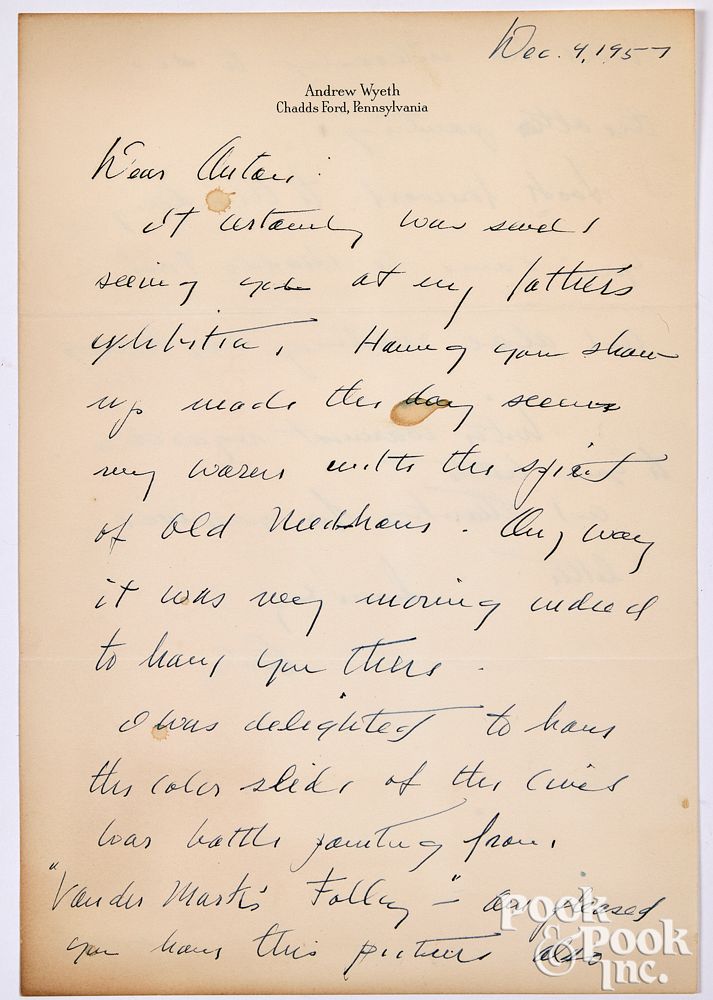 Dec. 4, 1957
Andrew Wyeth
Chadds Ford, Pennsylvania
Dear Anton:
It certainly was swell
seeing you at my father's
exhibition. Having you show
up made the day seem
very warm with the spirit
of old Needhams. Any way
it was very moving indeed
to have you there.
I was delighted to have
the color slide of the Civil
War battle painting from,
"Vander Mark's Folly" - am pleased
you have this picture also
Pook
& Pook
Inc.